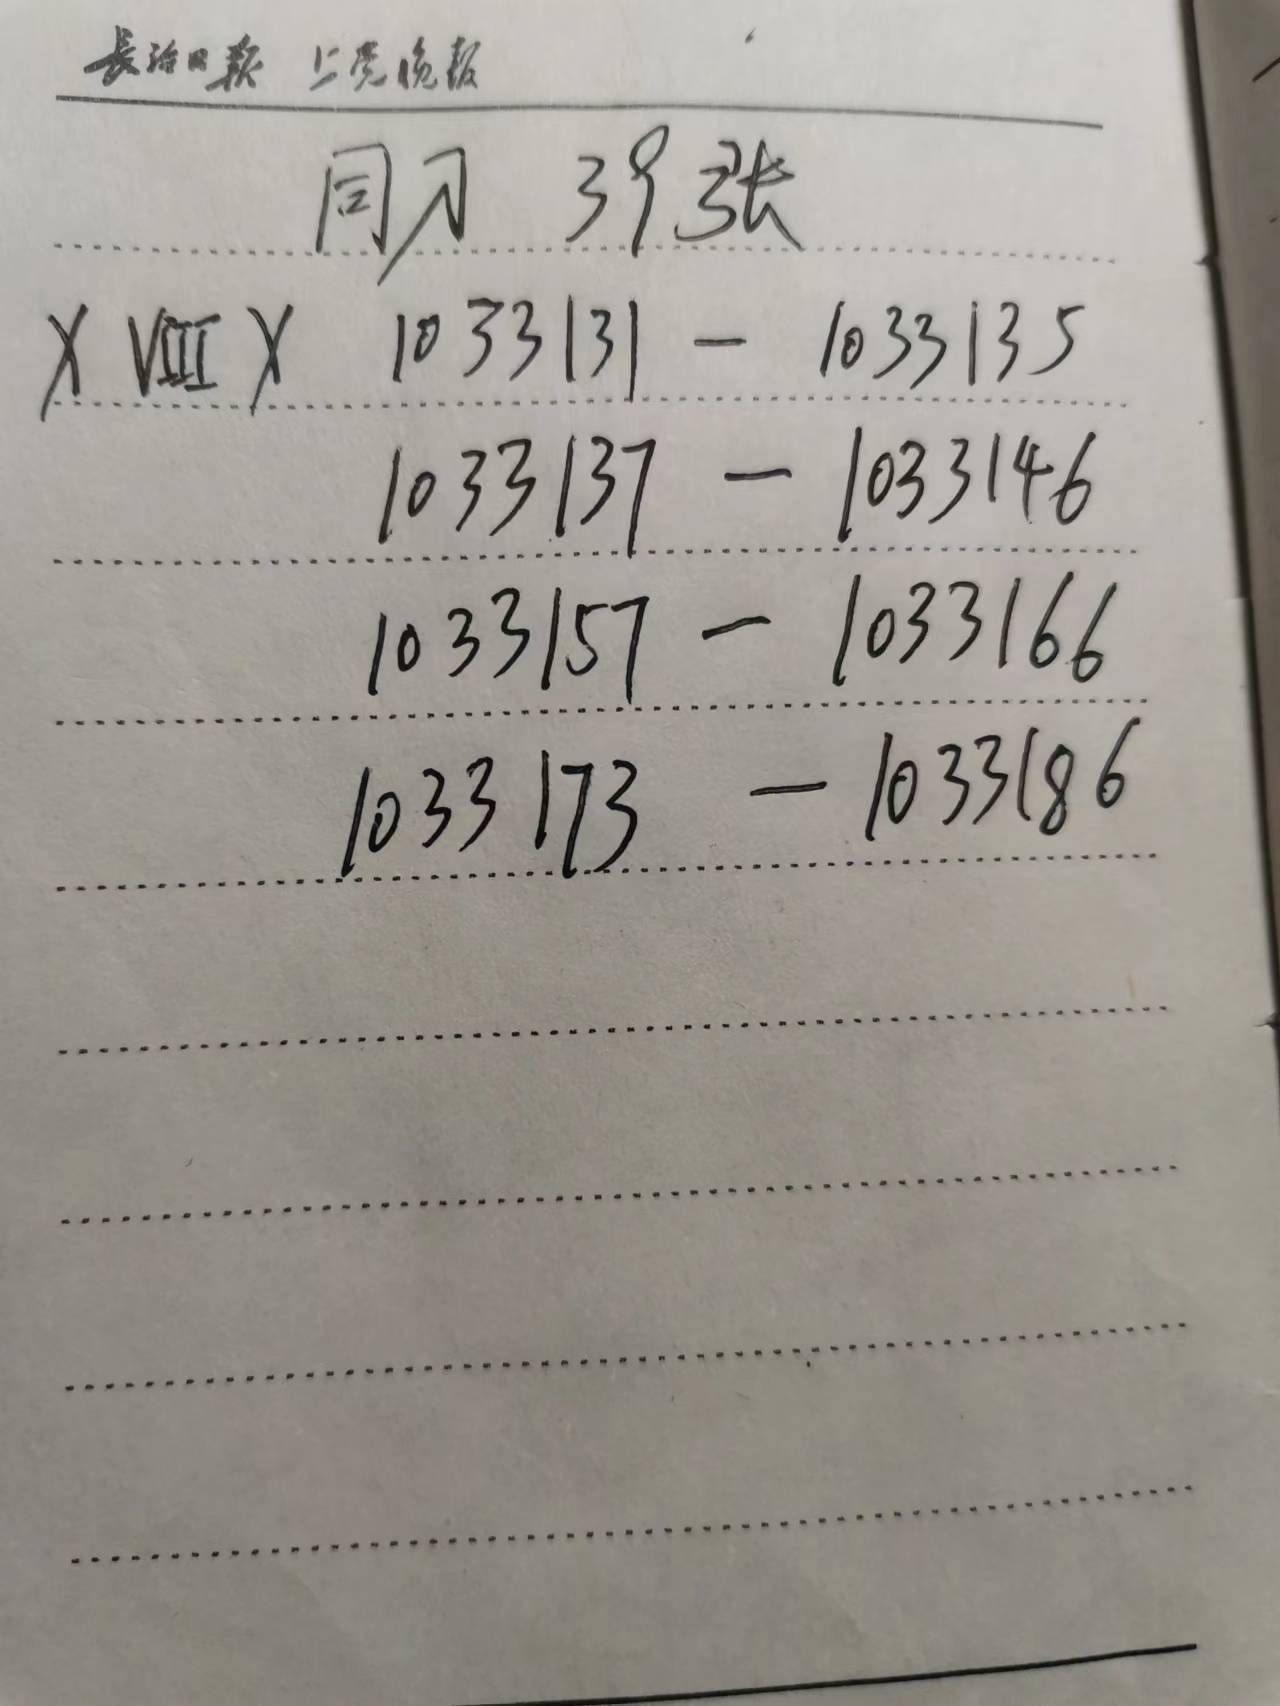 長治日報 上党晚报
同刀 39张
X VIII X 1033131 - 1033135
1033137 - 1033146
1033157 - 1033166
1033173 - 1033186